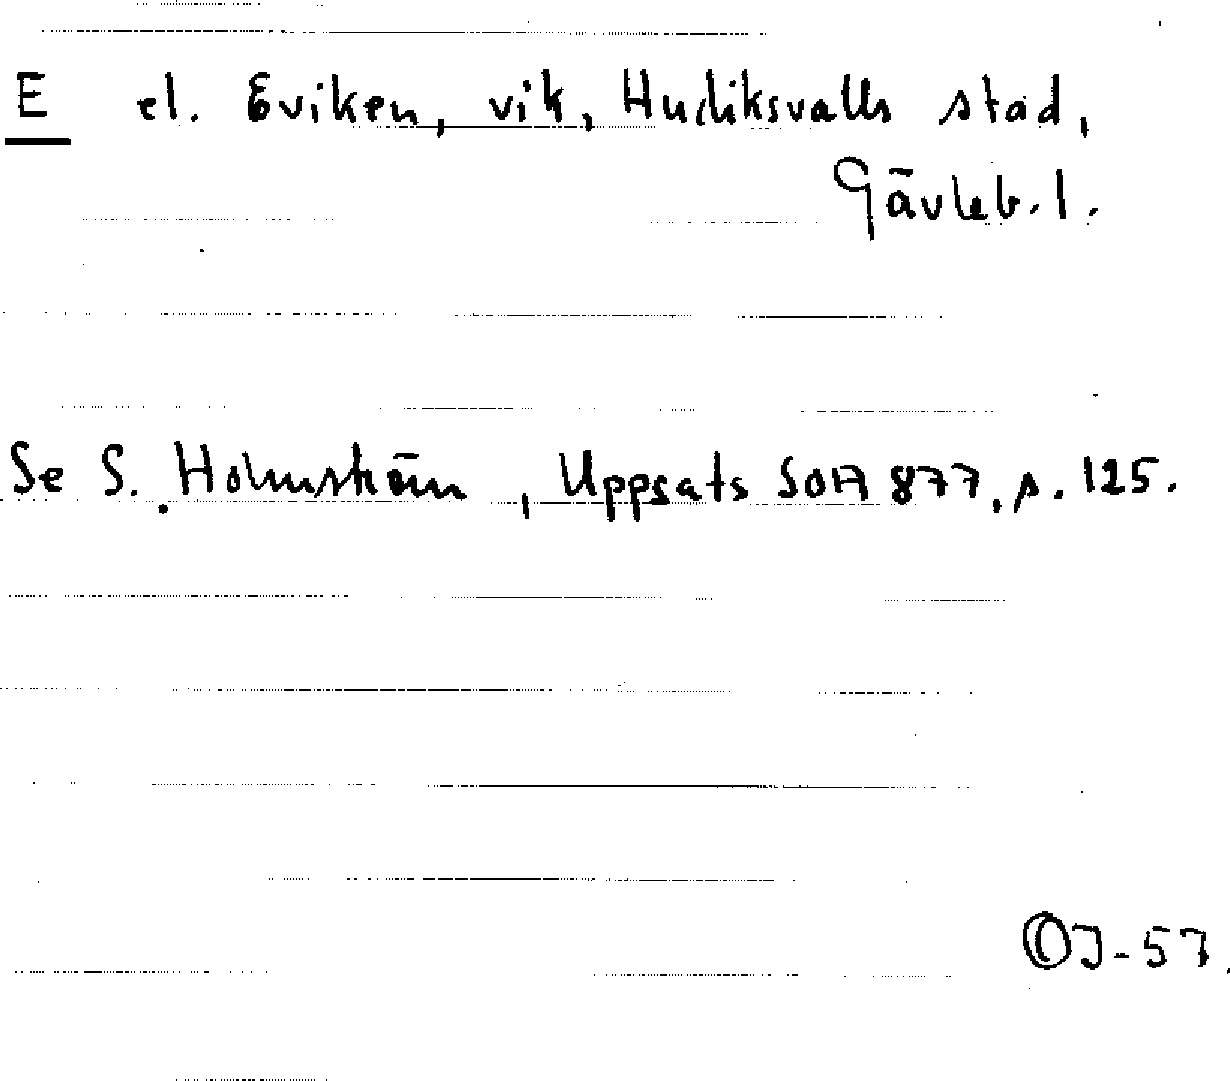 E el. Eviken, vik, Hudiksvalls stad,
Gävleb. l.
Se S. Holmström, Uppsats SOA 877, s. 125.
OJ-57.